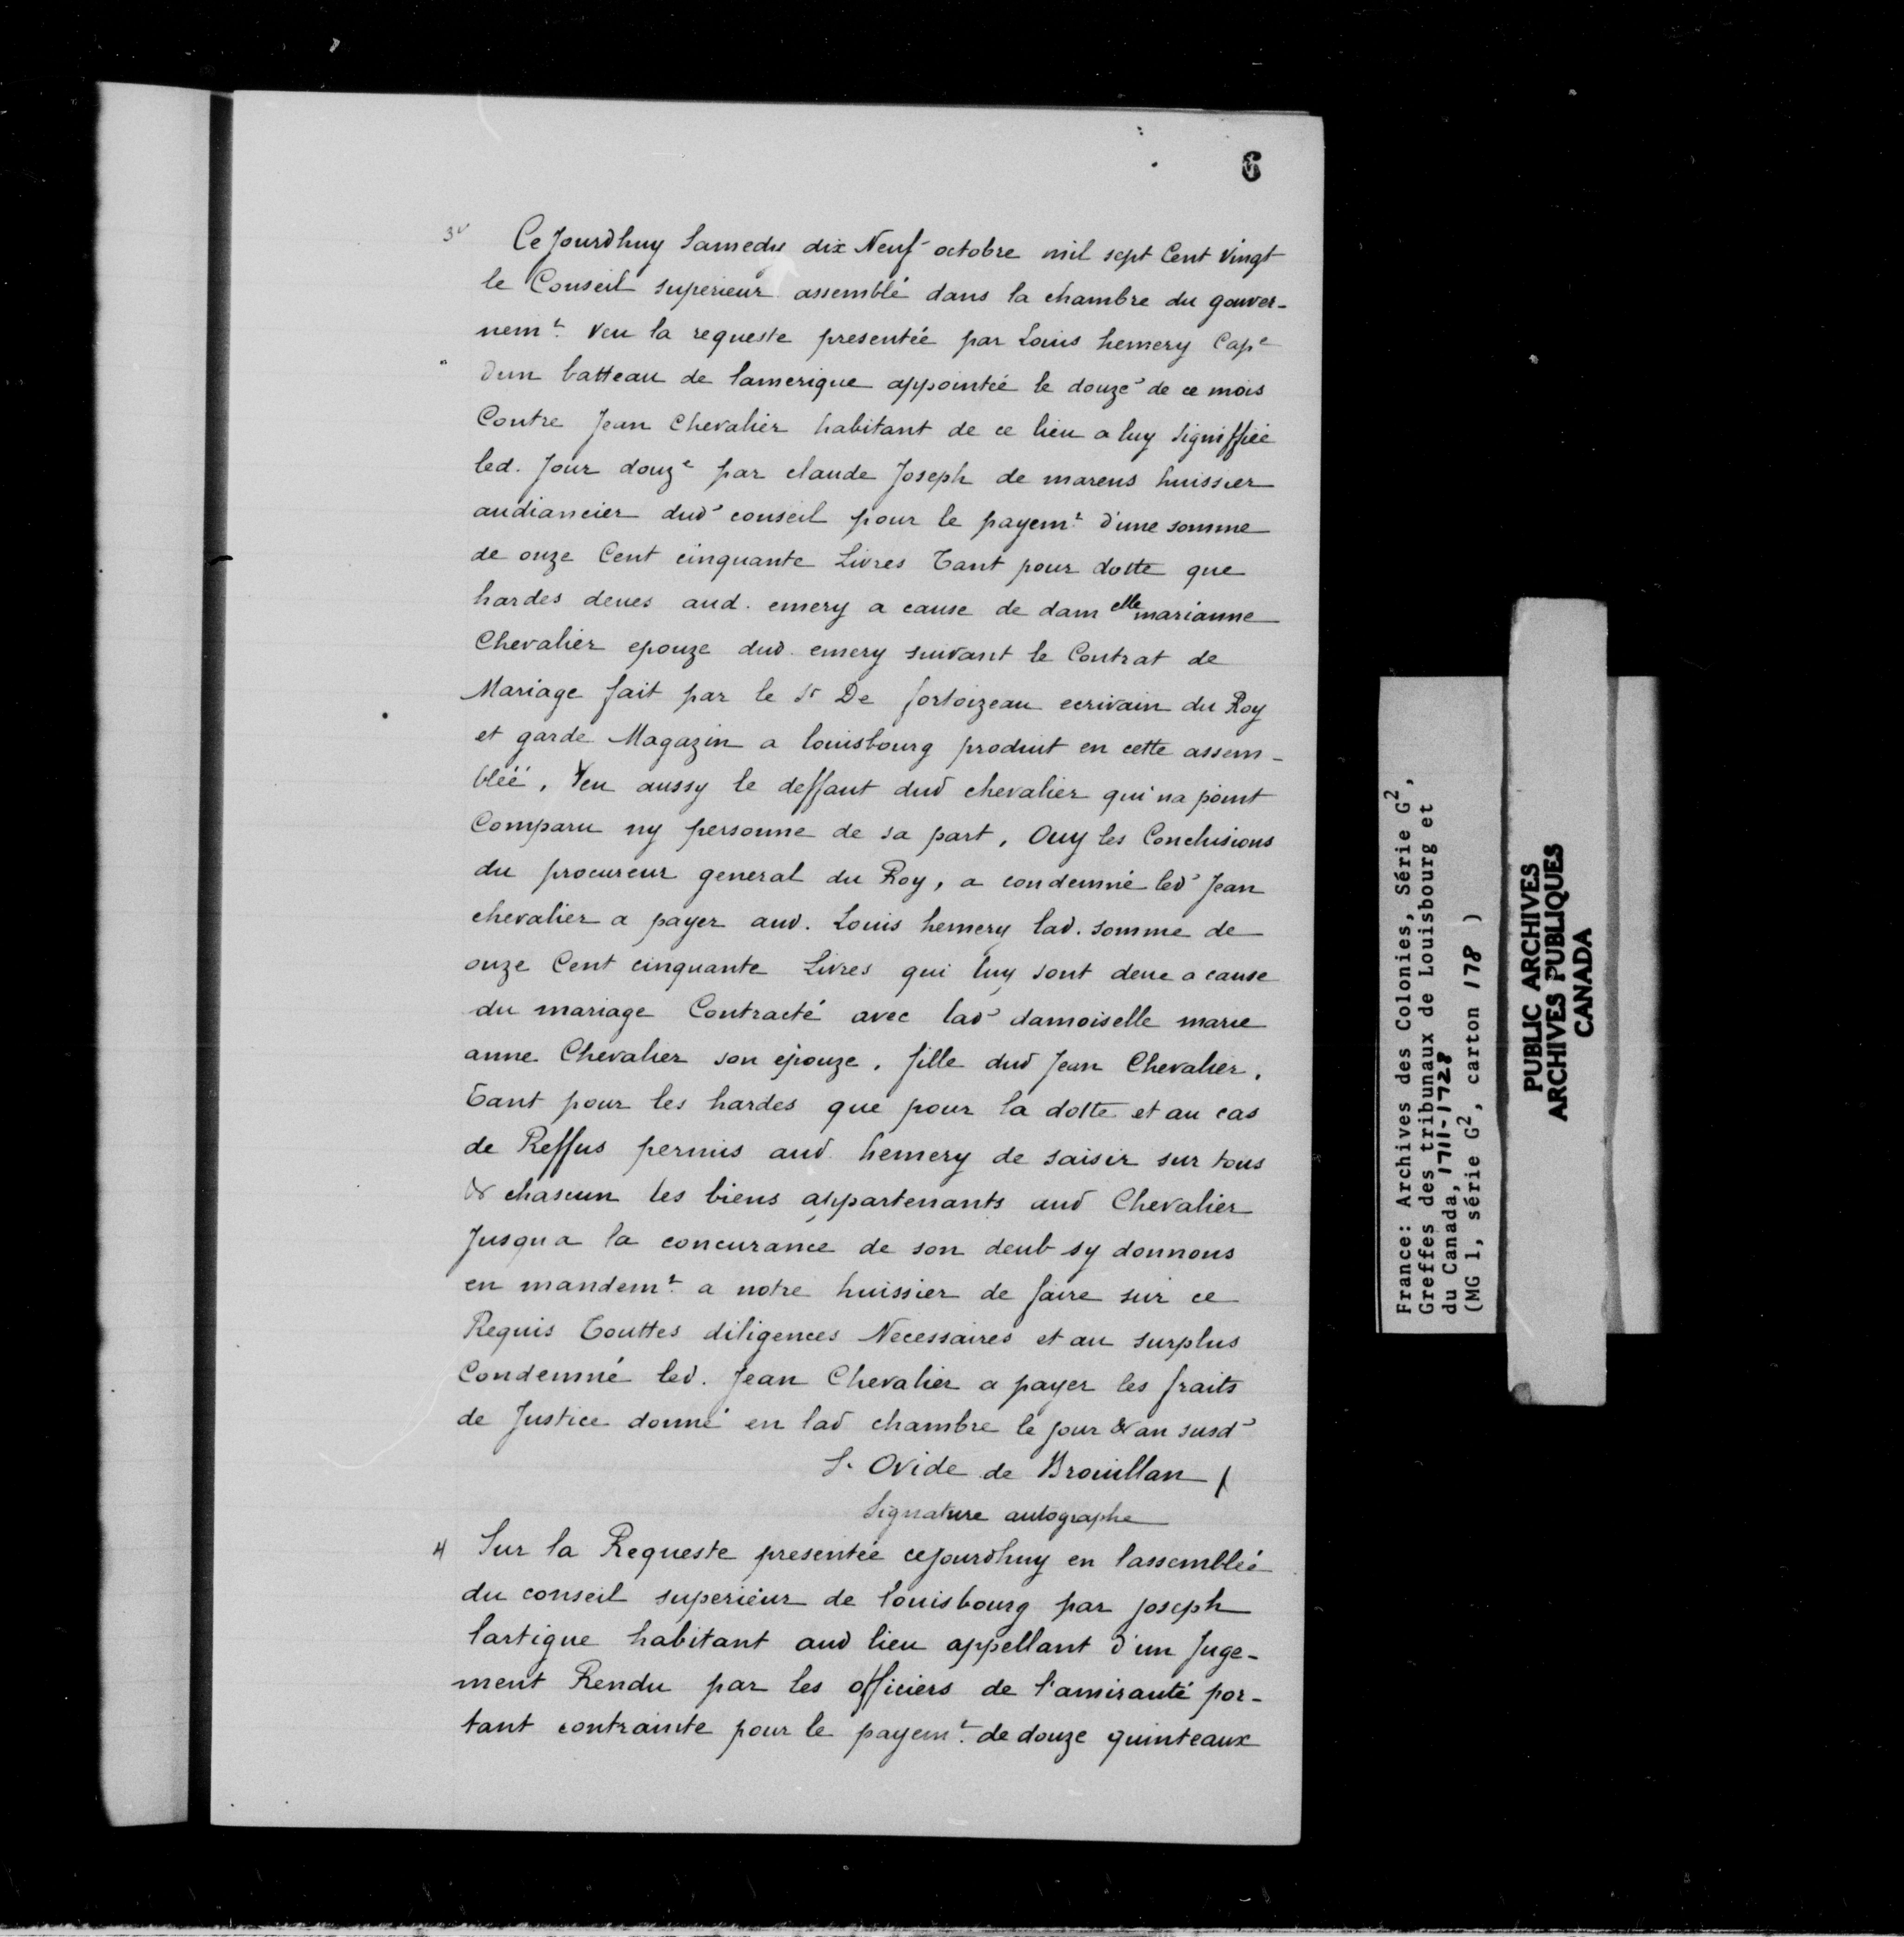 6
3º Ce Jourdhuy Samedy dix Neuf octobre mil sept Cent vingt
le Conseil superieur assemblé dans la chambre du gouver-
nemt. Veu la requeste presentée par Louis hemery Cape
dun batteau de lamerique appointée le douze de ce mois
Contre Jean Chevalier habitant de ce lieu a luy Signiffiée
led. Jour douze par claude Joseph de marens huissier
audiancier dud conseil pour le payemt. d'une somme
de onze Cent cinquante Livres Tant pour dotte que
hardes deues aud. emery a cause de damelle marianne
Chevalier epouze dud. emery suivant le Contrat de
Mariage fait par le Sr De fortoizeau ecrivain du Roy
et garde Magazin a louisbourg produit en cette assem-
bléé, Veu aussy le deffaut dud chevalier qui na point
Comparu ny personne de sa part, Ouy les Conclusions
du procureur general du Roy, a condemné led Jean
chevalier a payer aud. Louis hemery lad. somme de
onze Cent cinquante Livres qui luy sont deue a cause
du mariage Contracté avec lad damoiselle marie
anne Chevalier son épouze, fille dud Jean Chevalier,
Tant pour les hardes que pour la dotte et au cas
de Reffus permis aud hemery de saisir sur tous
& chascun les biens appartenants aud Chevalier
Jusqua la concurance de son deub sy donnons
en mandemt. a notre huissier de faire sur ce
Requis Touttes diligences Necessaires et au surplus
Condemné led. Jean Chevalier a payer les fraits
de Justice donné en lad chambre le jour & an susd
S. Ovide de Brouillan
Signature autographe
4 Sur la Requeste presentée cejourdhuy en lassembléé
du conseil superieur de louisbourg par joseph
lartigue habitant aud lieu appellant d'un Juge-
ment Rendu par les officiers de l'amirauté por-
tant contrainte pour le payemt. de douze quinteaux
France: Archives des Colonies, Série G2,
Greffes des tribunaux de Louisbourg et
du Canada, 1711-1728
(MG 1, série G2, carton 178 )
PUBLIC ARCHIVES
ARCHIVES PUBLIQUES
CANADA